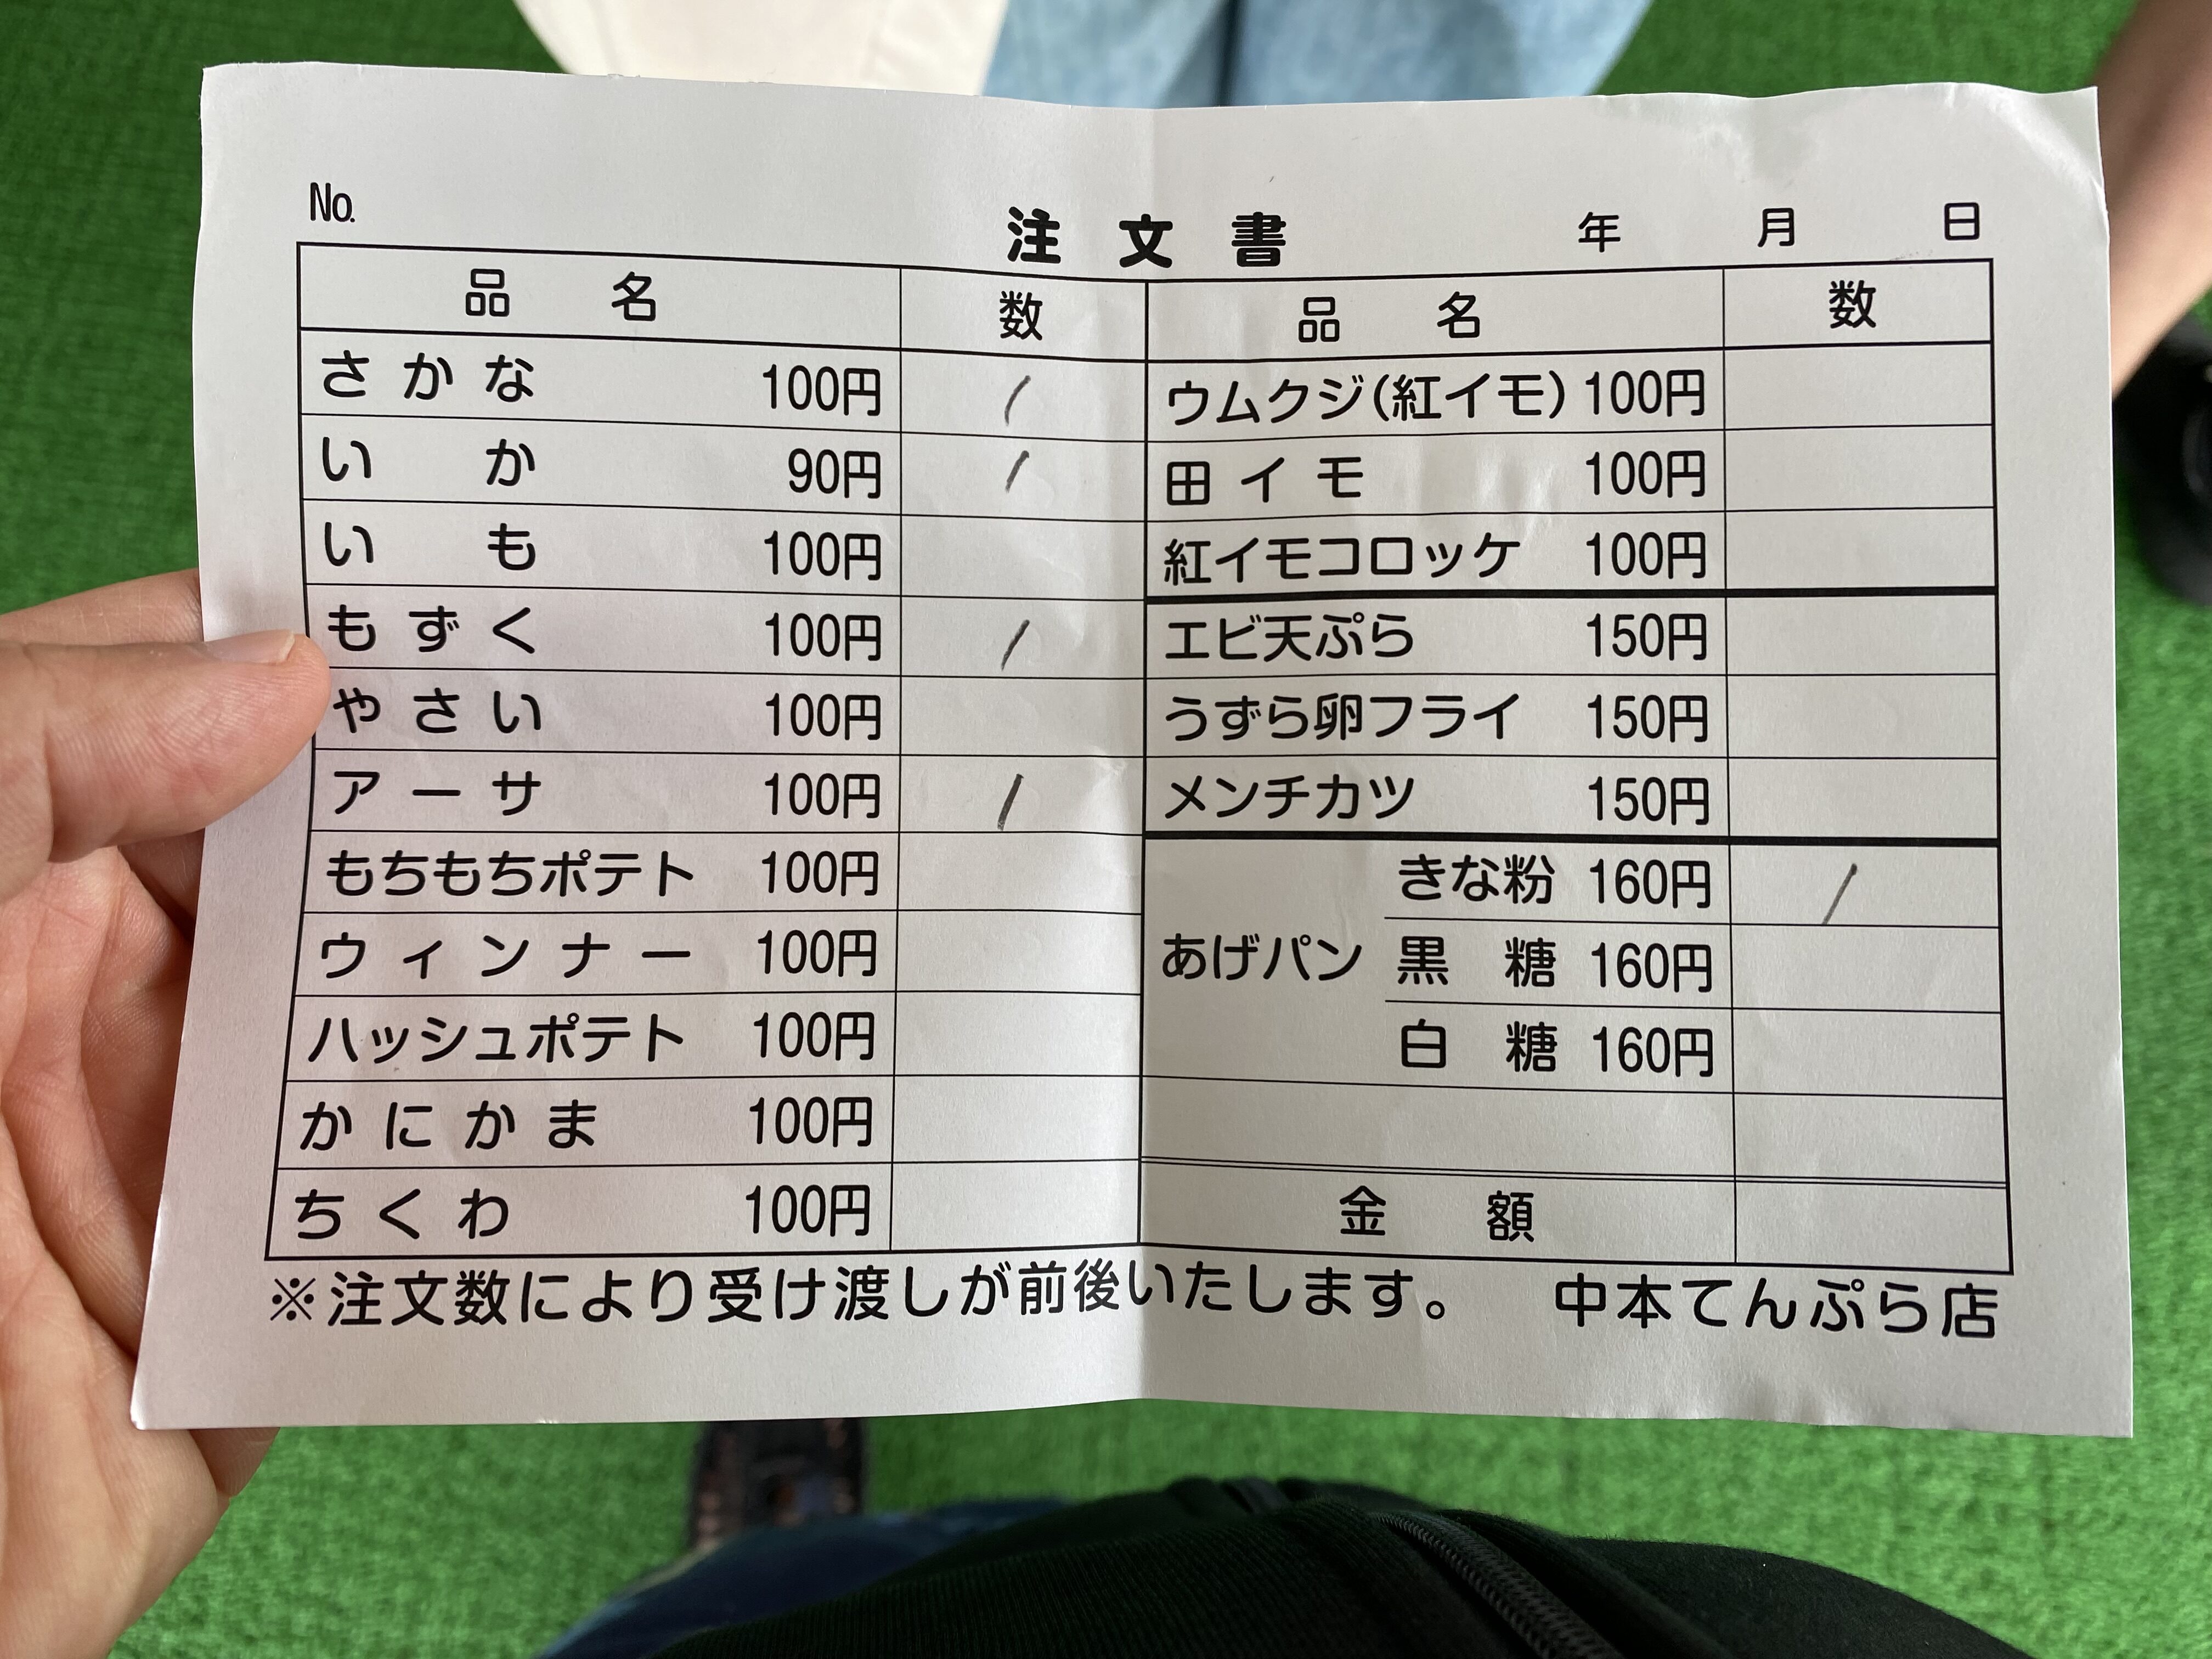 No.
注文書 年 月 日
品名 数 品名 数
さかな 100円 / ウムクジ(紅イモ) 100円
いか 90円 / 田イモ 100円
いも 100円 紅イモコロッケ 100円
もずく 100円 / エビ天ぷら 150円
やさい 100円 うずら卵フライ 150円
アーサ 100円 / メンチカツ 150円
もちもちポテト 100円 あげパン きな粉 160円 /
ウィンナー 100円 黒糖 160円
ハッシュポテト 100円 白糖 160円
かにかま 100円
ちくわ 100円 金額
※注文数により受け渡しが前後いたします。 中本てんぷら店